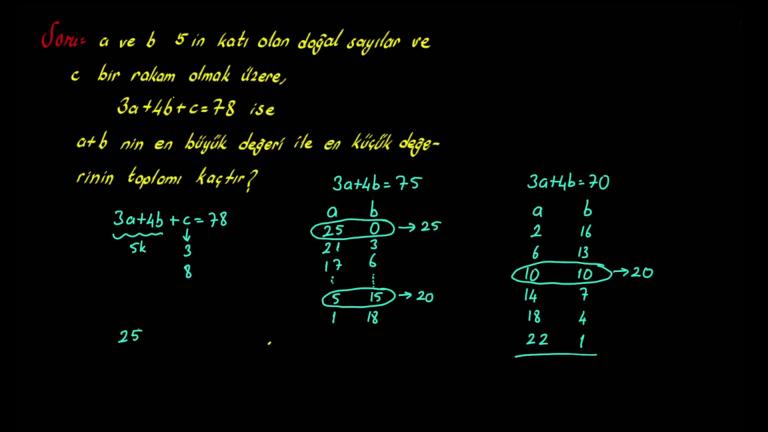 Soru= a ve b 5 in katı olan doğal sayılar ve
c bir rakam olmak üzere,
3a+4b+c=78 ise
a+b nin en büyük değeri ile en küçük değe-
rinin toplamı kaçtır?
3a+4b+c=78
5k
3
8
25
3a+4b=75
a b
25 0 → 25
21 3
17 6
⋮ ⋮
5 15 → 20
1 18
3a+4b=70
a b
2 16
6 13
10 10 → 20
14 7
18 4
22 1